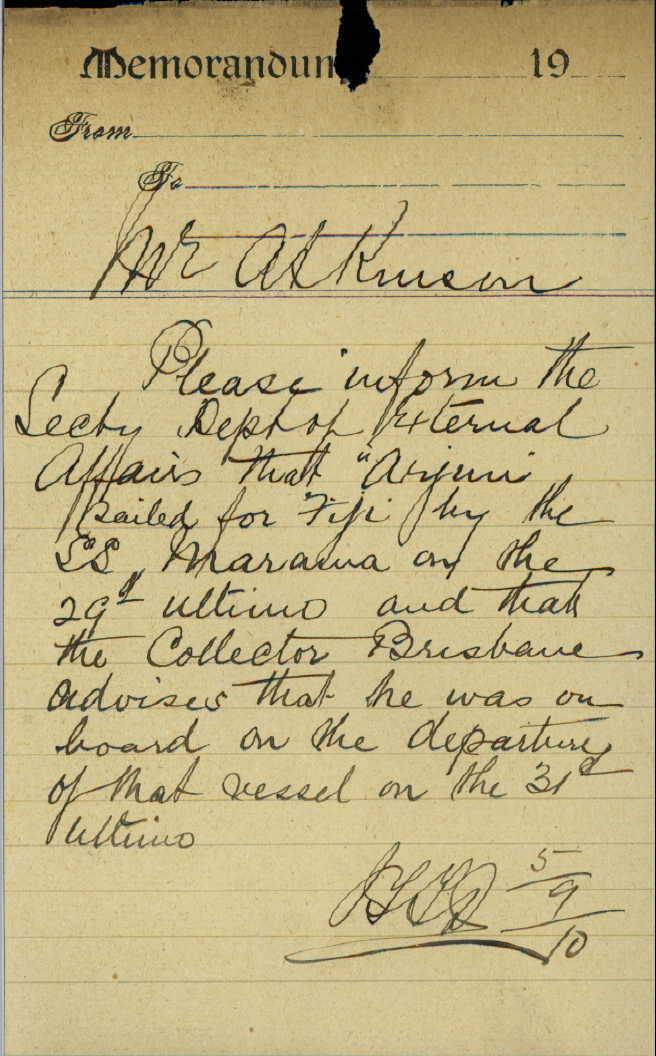 Memorandum 19
From
To
Mr Atkinson
Please inform the
Secty Dept of External
Affairs that "Arjuni
sailed for Fiji by the
SS Marama on the
29th ultimo and that
the Collector Brisbane
advises that he was on
board on the departure
of that vessel on the 31st
ultimo
5/9/10